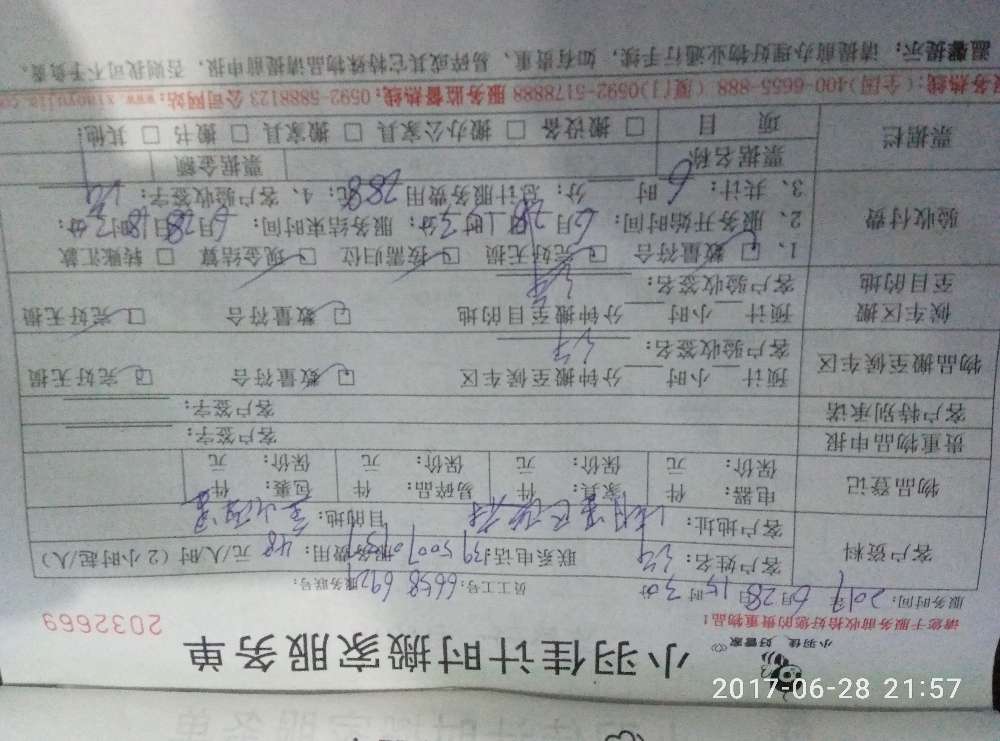 小羽佳计时搬家服务单
小羽佳 好管家
请您于服务前收拾好您的贵重物品!
2032669
服务时间: 2017年6月28日15时30分 员工工号: 6658 6921 服务联号:
客户资料
客户姓名: 联系电话: 服务费用: 48元/人/时(2小时起/人)
客户地址: 目的地:
物品登记
电器: 件 家具: 件 易碎品: 件 包裹: 件
保价: 元 保价: 元 保价: 元 保价: 元
贵重物品申报 客户签字:
客户特别承诺 客户签字:
物品搬至候车区
预计__小时__分钟搬至候车区 □数量符合 □完好无损
客户验收签名:
候车区搬至目的地
预计__小时__分钟搬至目的地 □数量符合 □完好无损
客户验收签名:
验收付费
1、□数量符合 □完好无损 □按需归位 □现金结算 □转账汇款
2、服务开始时间: 6月28日 时 分; 服务结束时间: 6月28日18时 分;
3、共计: 6时 分; 总计服务费用288元; 4、客户验收签字:
票据栏
票据名称 票据金额
项目 □搬设备 □搬办公家具 □搬家具 □搬书 □其他:
服务热线:(全国)400-6655-888 (厦门)0592-5178888 服务监督热线:0592-5888123 公司网站:www.xiaoyujia.com
温馨提示: 请提前办理好物业通行手续, 如有贵重、易碎或其它特殊物品请提前申报, 否则我司不予负责。
2017-06-28 21:57